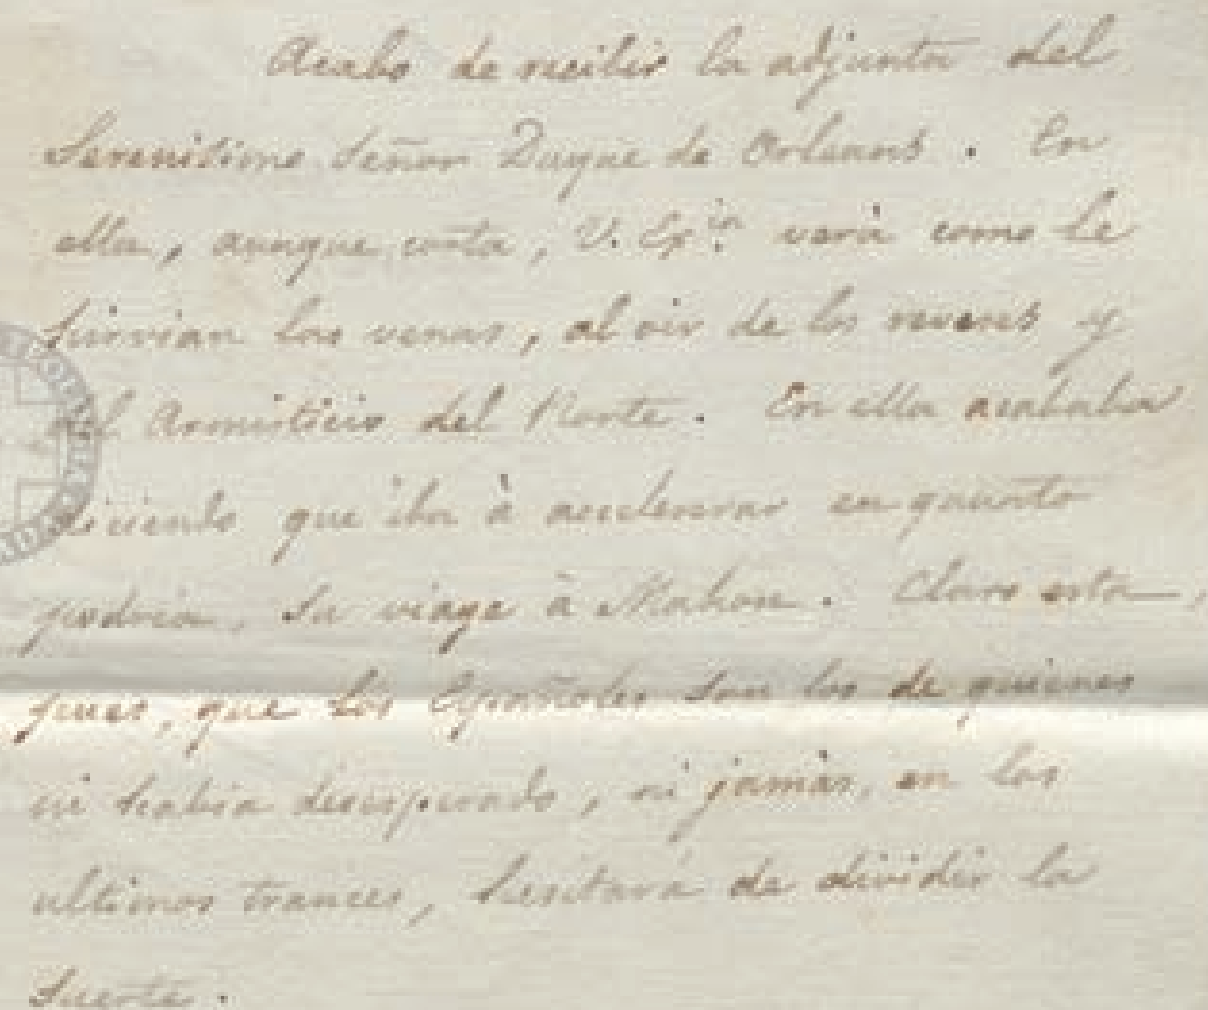 Acabo de recibir la adjunta del
Serenisimo Señor Duque de Orleans. En
ella, aunque corta, V. Exª. verá como le
las venas, al oir de los reveses y
el Armisticio del Norte. En ella acababa
diciendo que iba à accelerar en quanto
podria, su viage à Mahon. Claro esta,
pues, que los Españoles son los de quienes
ni habia desesperado, ni jamàs, en los
ultimos trances, hesitarà de dividir la
Suerte.